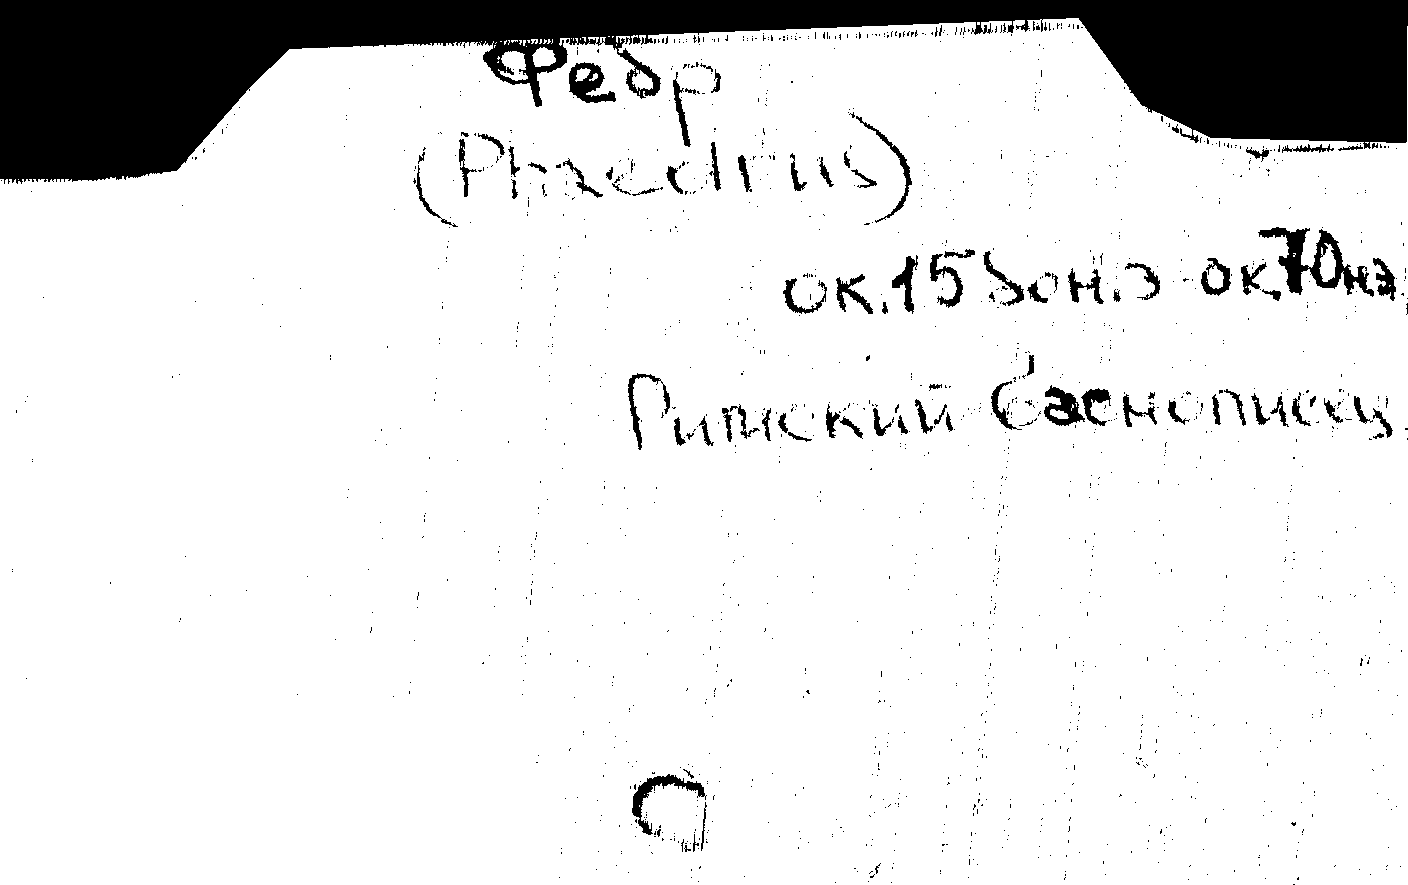 Федр
(Phaedrus)
ок. 15 до н.э ок. 70 нэ
Римский баснописец.